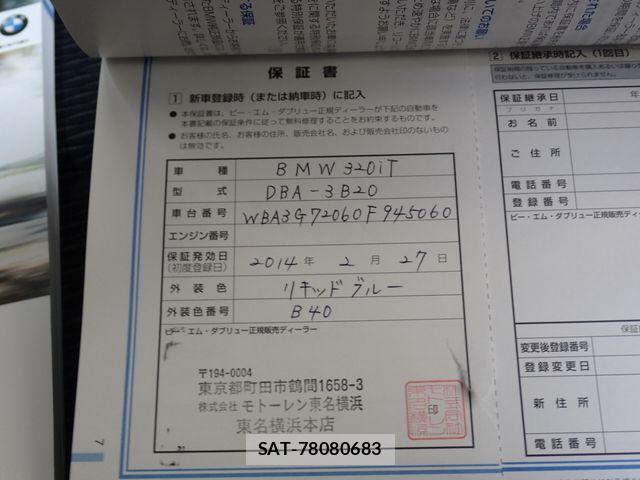 保証書
1 新車登録時（または納車時）に記入
● 本保証書は、ビー・エム・ダブリュー正規ディーラーが下記の自動車を
本書記載の保証条件に従って無料修理することをお約束するものです。
● お客様の氏名、お客様の住所、販売会社名、および販売会社印のないもの
は無効です。
車種 BMW320iT
型式 DBA-3B20
車台番号 WBA3G72060F945060
エンジン番号
保証発効日 2014年 2月 27日
（初度登録日）
外装色 リキッドブルー
外装色番号 B40
ビー・エム・ダブリュー正規販売ディーラー
〒194-0004
東京都町田市鶴間1658-3
株式会社 モトーレン東名横浜
東名横浜本店
7
2 保証継承時記入（1回目）
保証継承日 年
フリガナ
お名前
ご住所
電話番号
登録番号
ビー・エム・ダブリュー正規販売
変更後登録番号
登録変更日
新住所
電話番号
SAT-78080683